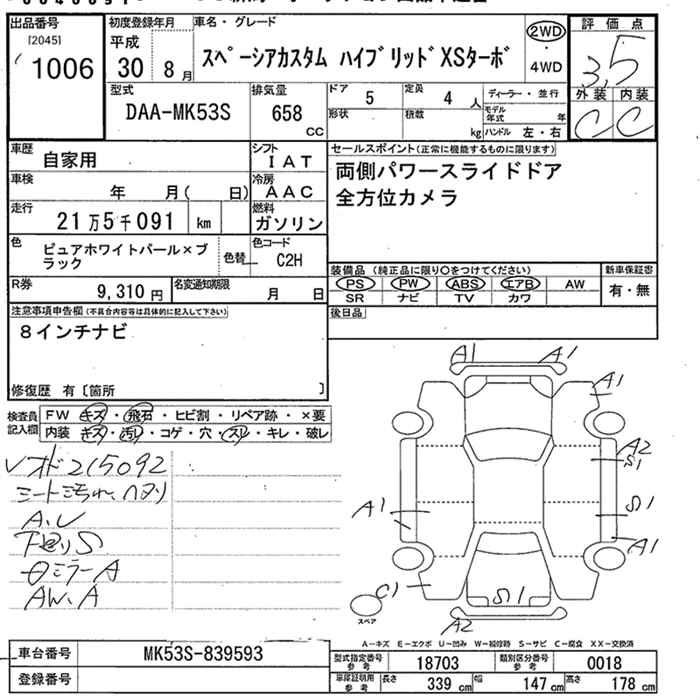 出品番号 初度登録年月 車名・グレード 評価点
[2045] 平成 2WD
1006 30 8月 スペーシアカスタム ハイブリッドXSターボ ・ 3.5
4WD
型式 排気量 ドア 5 定員 4人 ディーラー・並行 外装 内装
DAA-MK53S 658 cc 形状 積載 kg モデル年式 年 C C
ハンドル 左・右
車歴 自家用 シフト IAT セールスポイント(正常に機能するものに限ります)
車検 年 月( 日) 冷房 AAC 両側パワースライドドア
走行 21万5千091 km 燃料 ガソリン 全方位カメラ
色 ピュアホワイトパール×ブラック 色替 色コード C2H
装備品(純正品に限り○をつけてください) 新車保証書
R券 9,310円 名変通知期限 月 日 PS PW ABS エアB AW 有・無
SR ナビ TV カワ
注意事項申告欄(不具合内容等は具体的に記入して下さい) 後日品
8インチナビ
修復歴 有〔箇所 〕
検査員記入欄 FW キズ・飛石・ヒビ割・リペア跡・×要
内装 キズ・汚れ・コゲ・穴・スレ・キレ・破レ
A1 A1
A1
A2
S1
A1 S1
A1
C1 S1
A2
215092
シート汚れ、ヘタリ
A.U
下廻りS
ミラーA
AW、A
スペア
A-キズ E-エクボ U-凹み W-補修跡 S-サビ C-腐食 XX-交換済
車台番号 MK53S-839593 型式指定番号 参考 18703 類別区分番号 参考 0018
登録番号 車庫証明用 参考 長さ 339 cm 幅 147 cm 高さ 178 cm